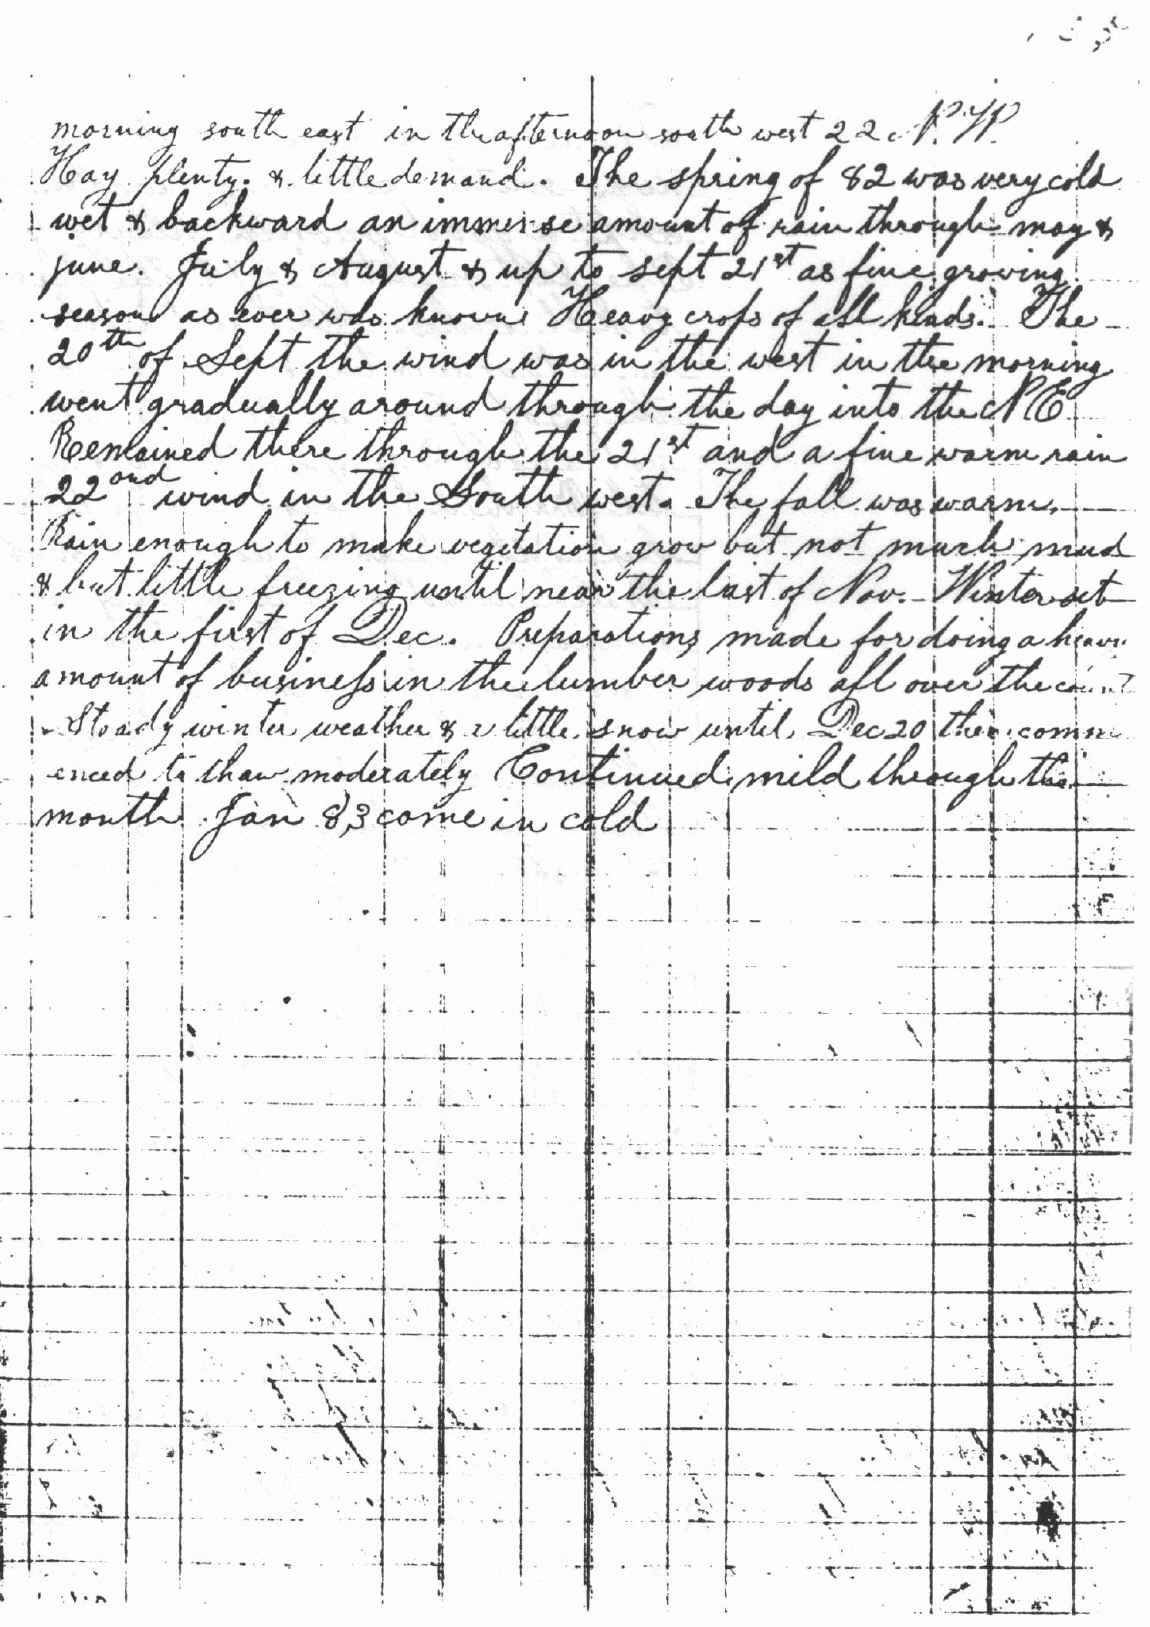 morning south east in the afternoon south west 22 N. W.
Hay plenty. & little demand. The spring of 82 was very cold
wet & backward an immense amount of rain through may &
june. July & August & up to sept 21st as fine growing
season as ever was known Heavy crops of all kinds. The
20th of Sept the wind was in the west in the morning
went gradually around through the day into the N E
Remained there through the 21st and a fine warm rain
22ond wind in the South west. The fall was warm.
Rain enough to make vegetation grow but not much mud
& but little freezing until near the last of Nov. Winter set
in the first of Dec. Preparations made for doing a heavy
amount of business in the lumber woods all over the
Steady winter weather & a little snow until Dec 20 then comm
enced to thaw moderately Continued mild through the
month Jan 83 come in cold